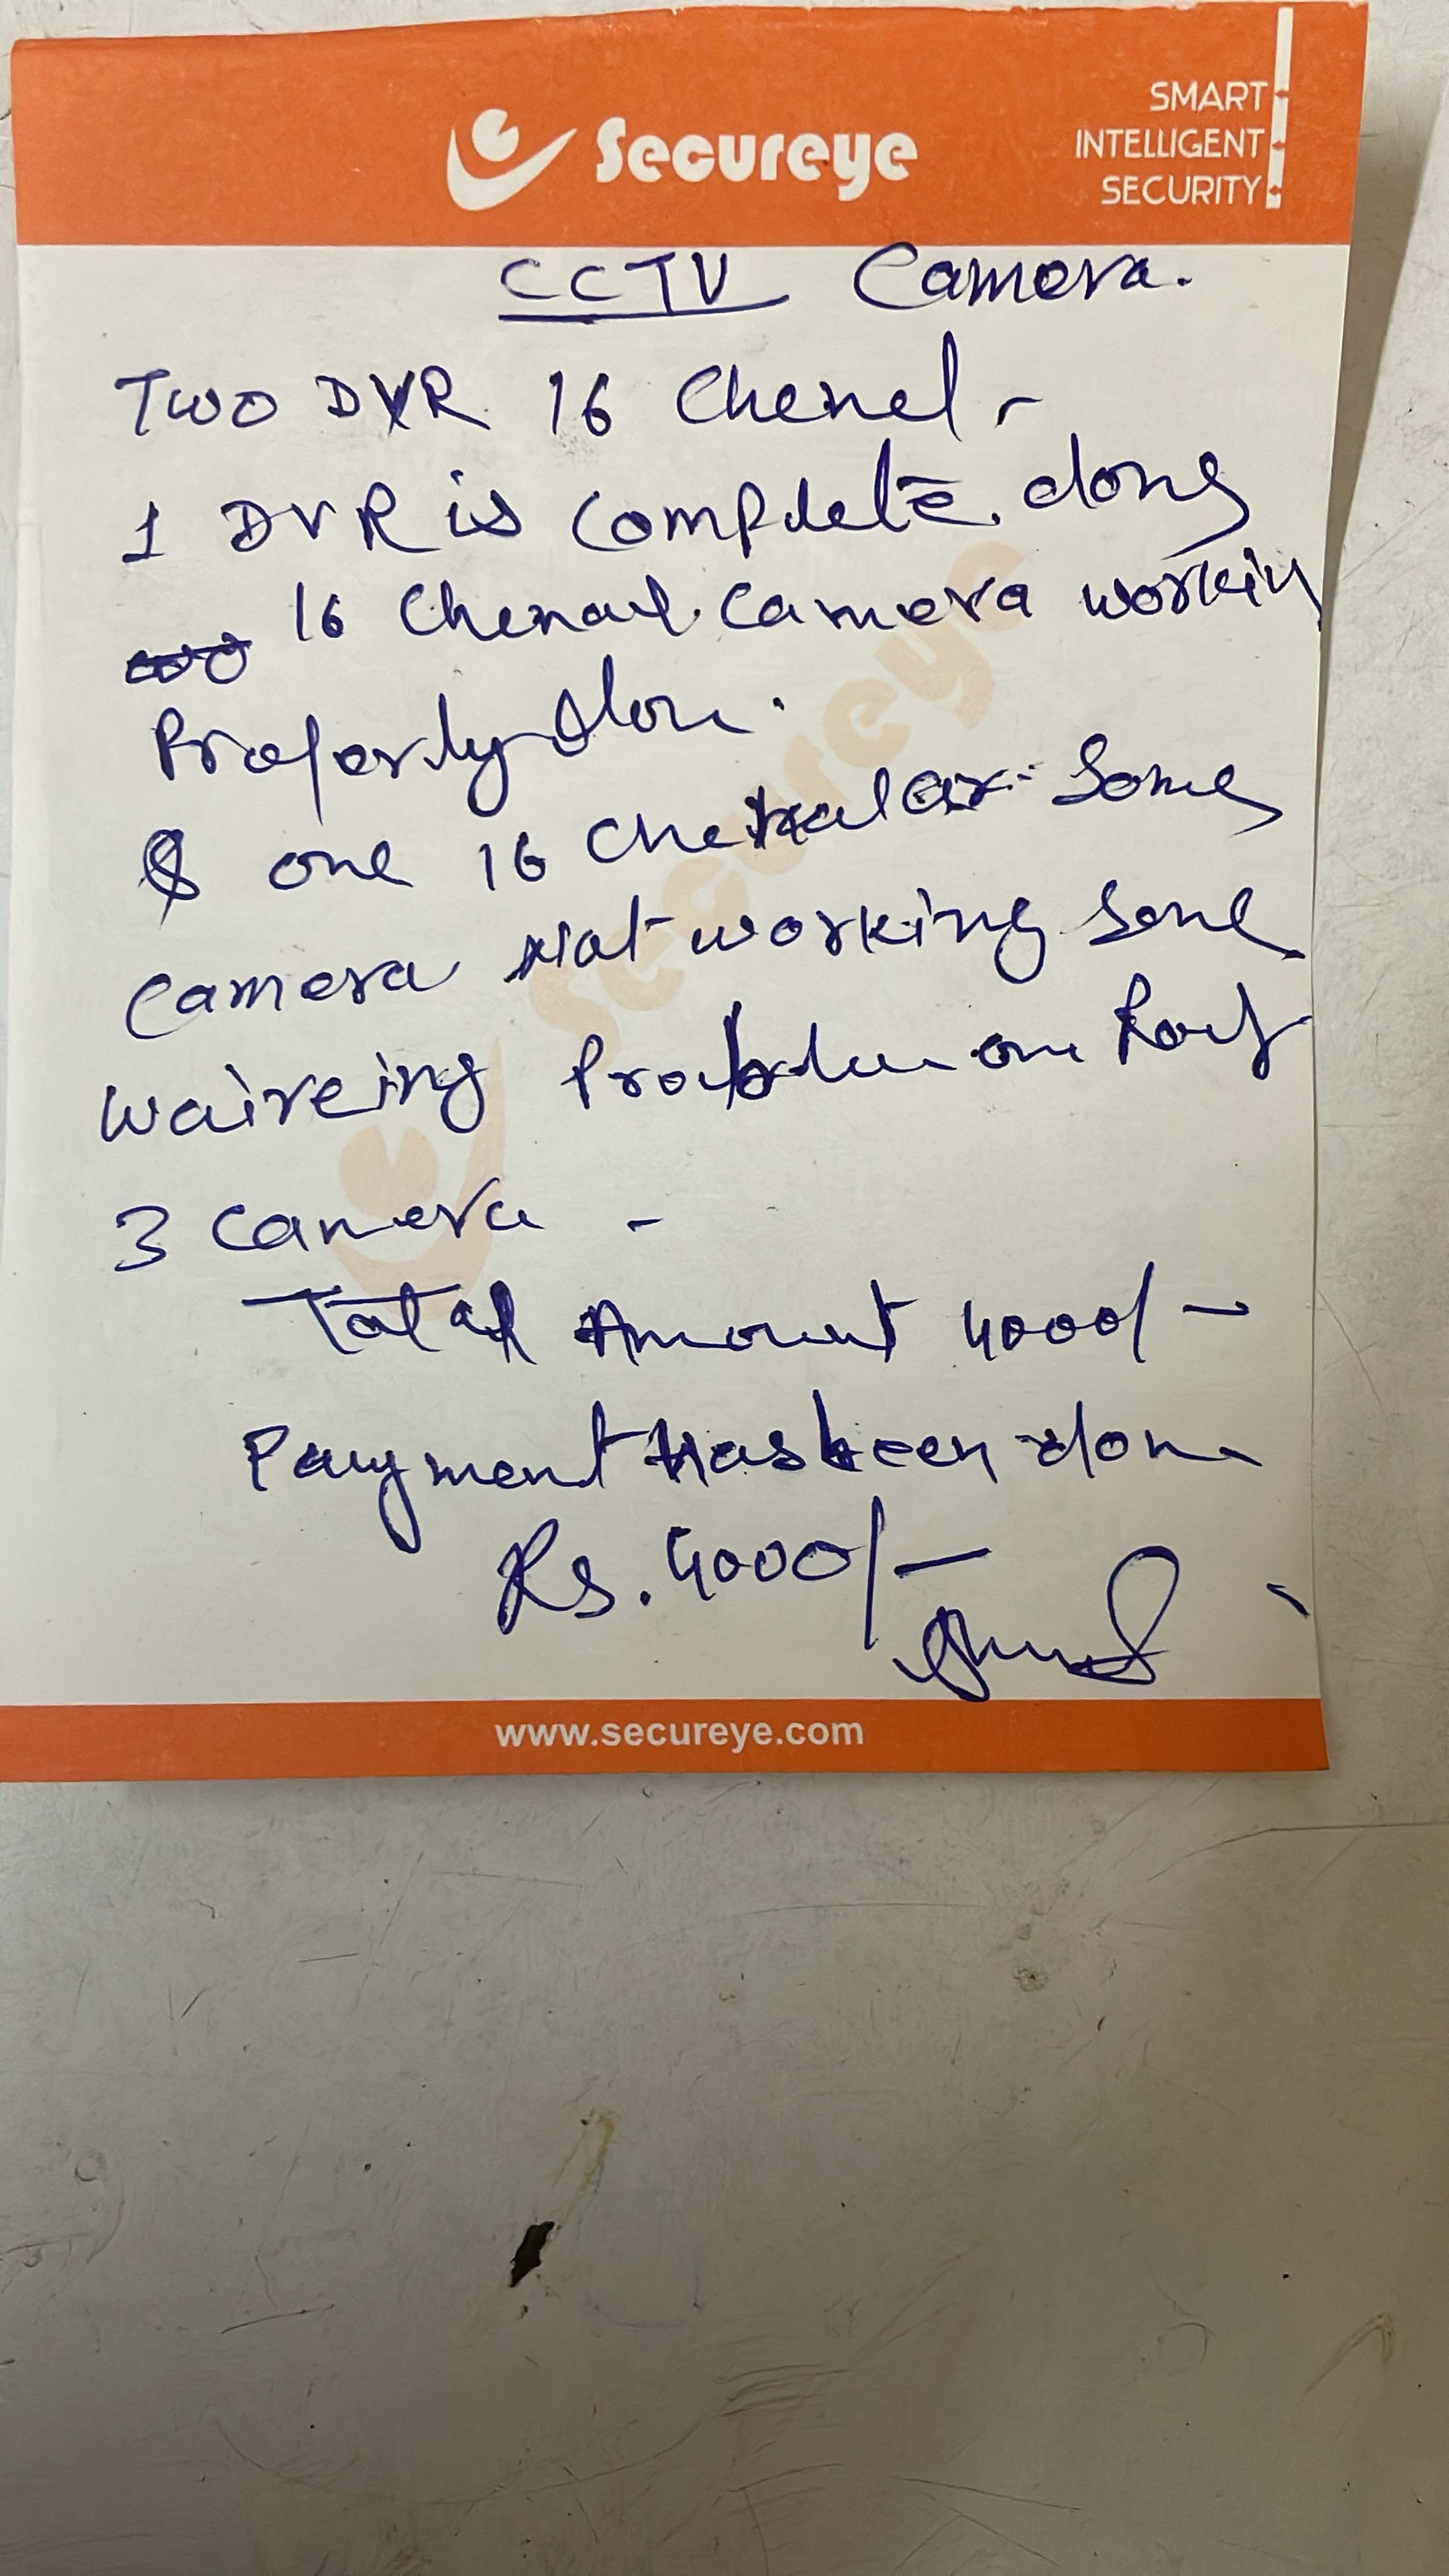 Secureye
SMART
INTELLIGENT
SECURITY
CCTV Camera.
Two DVR 16 Chenel -
1 DVR is complete. done
16 Chenal. Camera workin
Properly done.
& one 16 Chenal Some
Camera Not working some
waireing Problem on Roof
3 Camera -
Total Amount 4000/-
Payment Has been done
Rs. 4000/-
Secureye
www.secureye.com